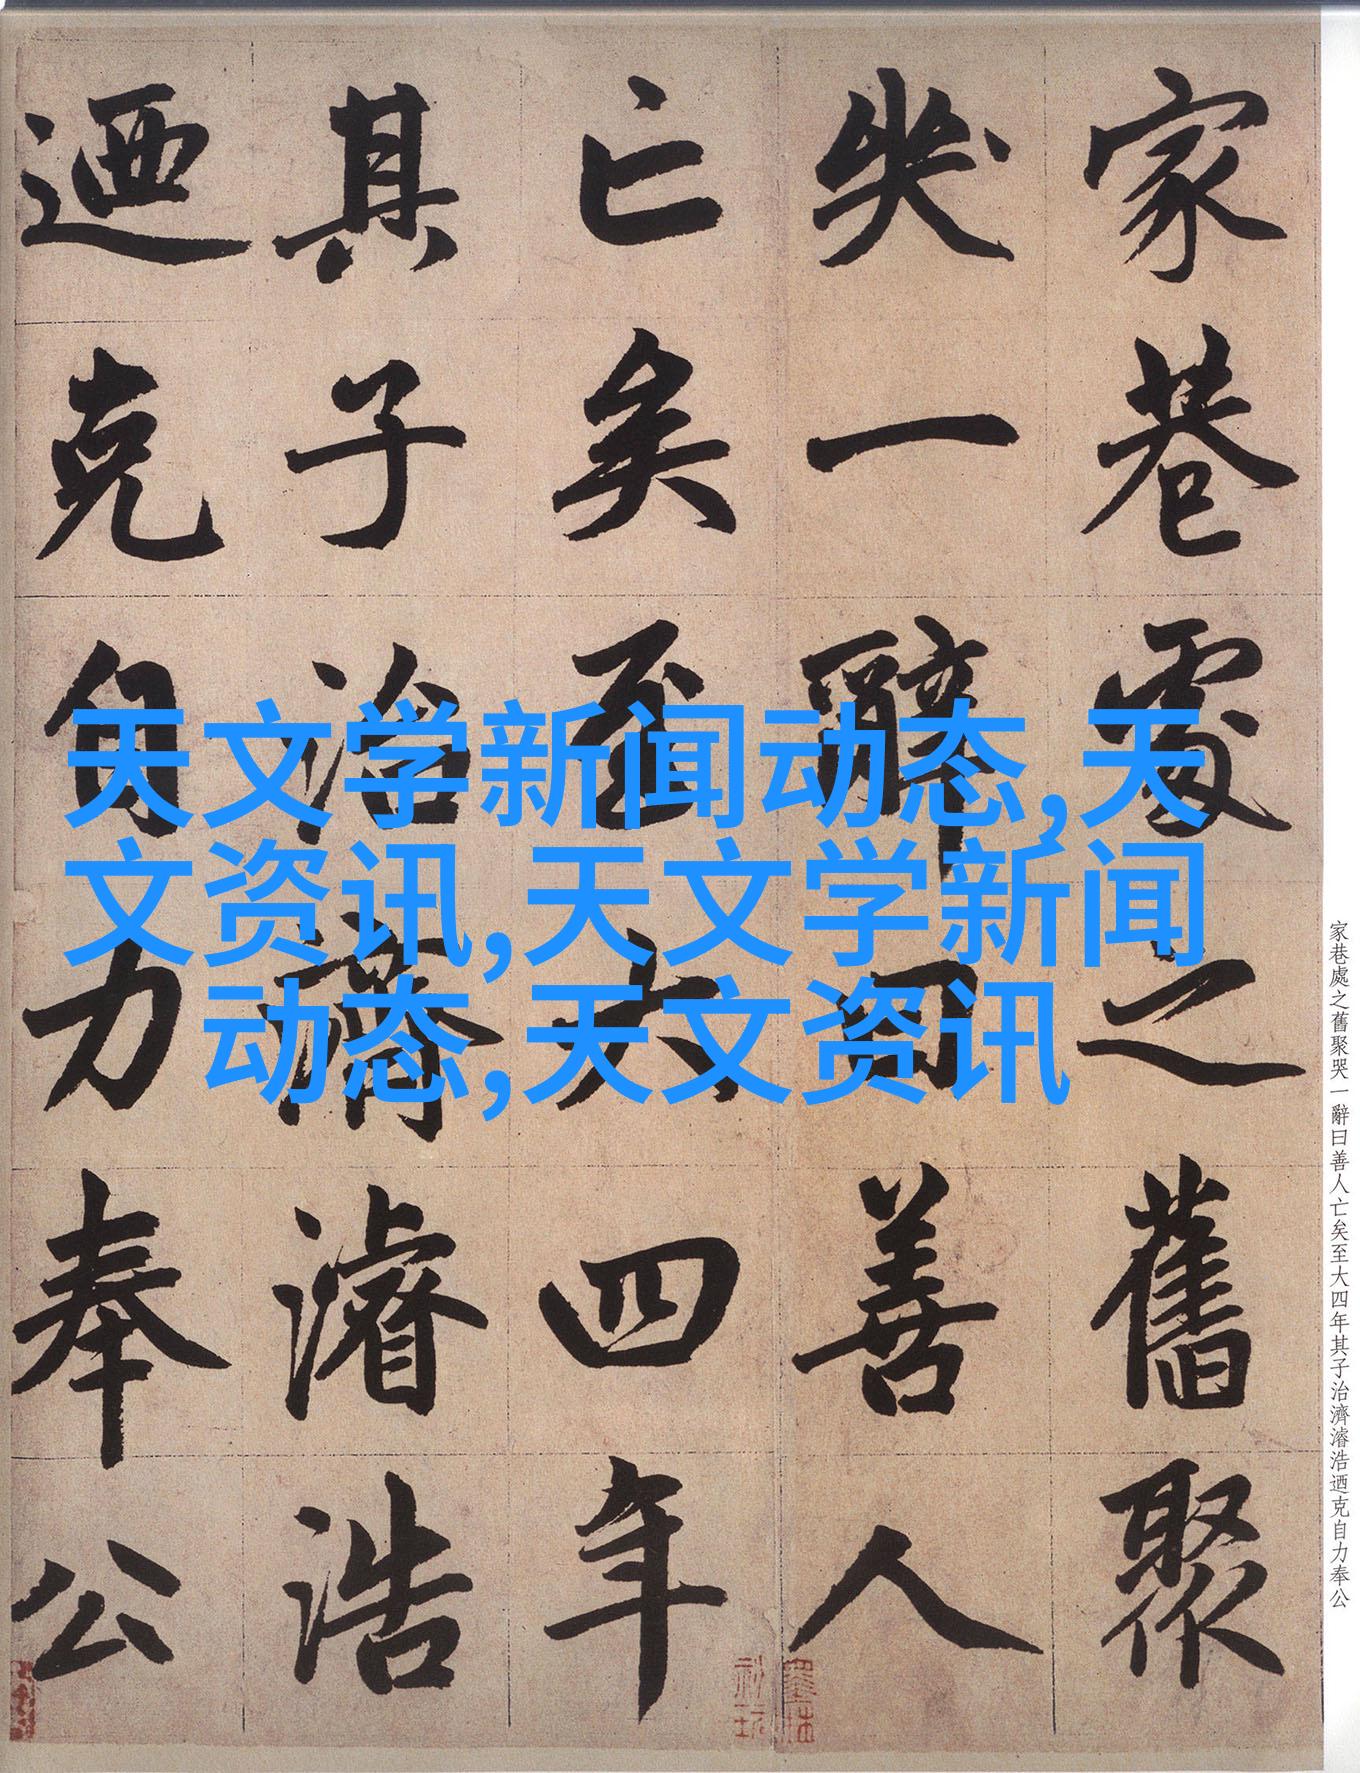 家巷處之舊聚
哭一辭曰善人
亡矣至大四年
其子治濟濬浩
迺克自力奉公
天文学新闻动态,天
文资讯,天文学新闻
动态,天文资讯
家巷處之舊聚哭一辭曰善人亡矣至大四年其子治濟濬浩迺克自力奉公
墨林
秘玩